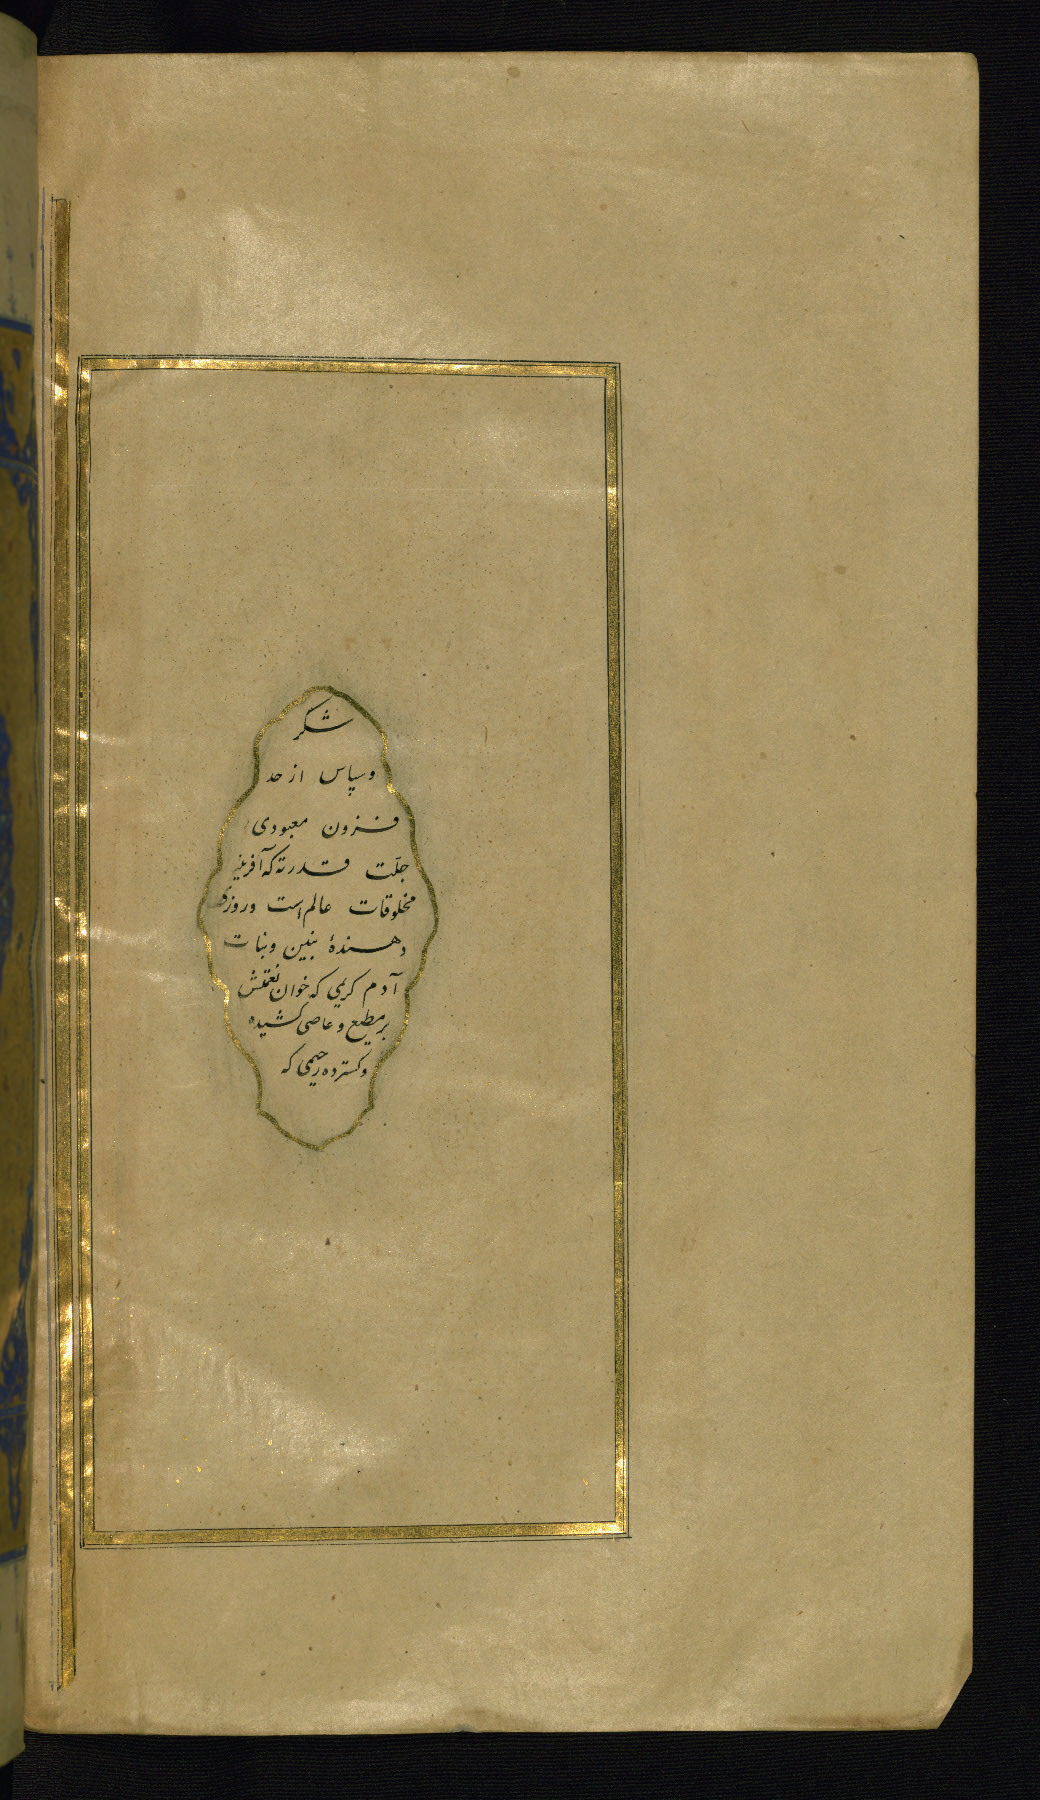 شکر
و سپاس از حد
فزون معبودی
جلّت قدرته که آفرینندهٔ
مخلوقات عالم است و روزی
دهندهٔ بنین و بنات
آدم کریمی که خوان نعمتش
بر مطیع و عاصی کشیده
و گسترده رحیمی که